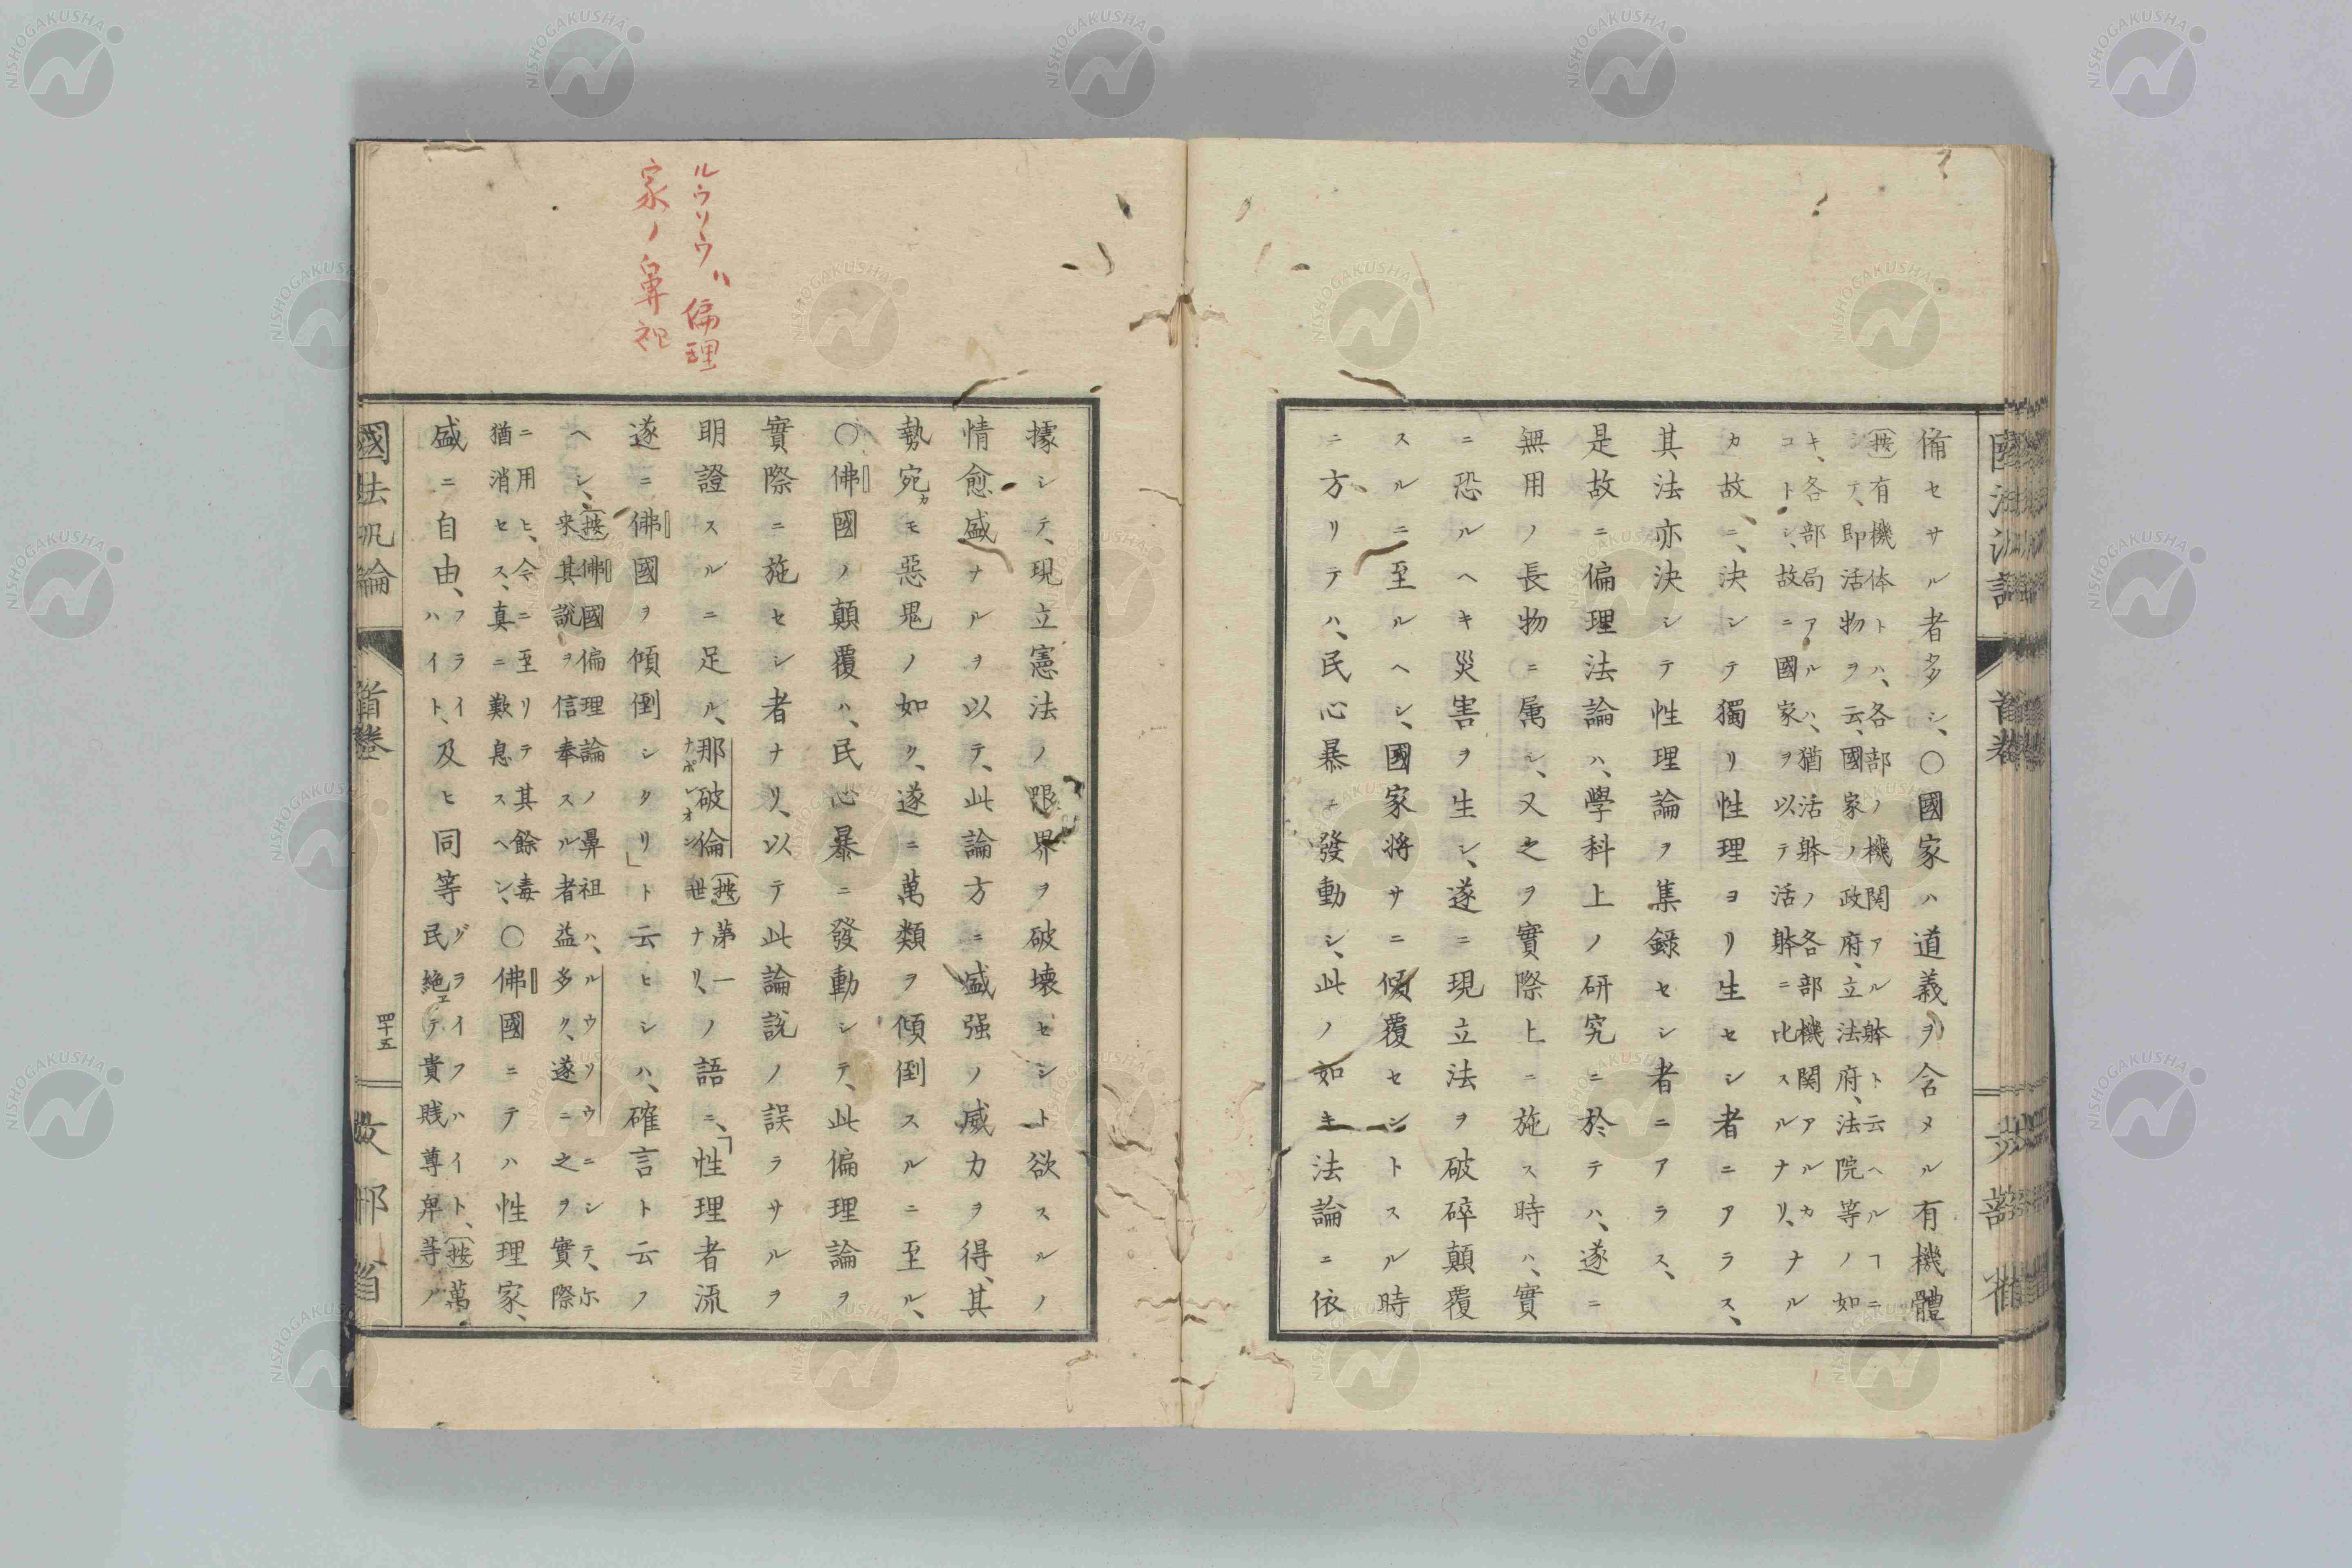 備セサル者多シ、〇國家ハ道義ヲ含メル有機體
(按)有機体トハ、各部ノ機関アル躰ト云ヘルヿニ
シテ、即活物ヲ云、國家ノ政府、立法府、法院等ノ如
キ、各部局アルハ、猶活躰ノ各部機関アルカ
コトシ、故ニ國家ヲ以テ活躰ニ比スルナリ、ナル
カ故ニ、決シテ獨リ性理ヨリ生セシ者ニアラス、
其法亦決シテ性理論ヲ集録セシ者ニアラス、
是故ニ偏理法論ハ、學科上ノ研究ニ於テハ、遂ニ
無用ノ長物ニ属シ、又之ヲ實際上ニ施ス時ハ、實
ニ恐ルヘキ災害ヲ生シ、遂ニ現立法ヲ破碎顛覆
スルニ至ルヘシ、國家将サニ傾覆セントスル時
ニ方リテハ、民心暴ニ發動シ、此ノ如キ法論ニ依
ルウソウハ偏理
家ノ鼻祖
據シテ、現立憲法ノ限界ヲ破壊セシト欲スルノ
情愈盛ナルヲ以テ、此論方ニ盛强ノ威力ヲ得、其
勢宛カモ惡鬼ノ如ク、遂ニ萬類ヲ傾倒スルニ至ル、
〇佛國ノ顛覆ハ、民心暴ニ發動シテ、此偏理論ヲ
實際ニ施セシ者ナリ、以テ此論説ノ誤ラサルヲ
明證スルニ足ル、那破倫ナポレオン(按)第一
世ナリ、ノ語ニ、「性理者流
遂ニ佛國ヲ傾倒シタリ」ト云ヒシハ、確言ト云フ
ヘシ、(按)佛國偏理論ノ鼻祖ハ、ルウソウニシテ、尓
来其説ヲ信奉スル者益多ク、遂ニ之ヲ實際
ニ用ヒ、今ニ至リテ其餘毒
猶消セス、真ニ歎息スヘシ、〇佛國ニテハ性理家、
盛ニ自由、フライイ
ハイト、及ヒ同等グライフハイト、(按)萬
民絶エテ貴賎尊卑等ノ
國法汎論
首巻
四十五
文部省